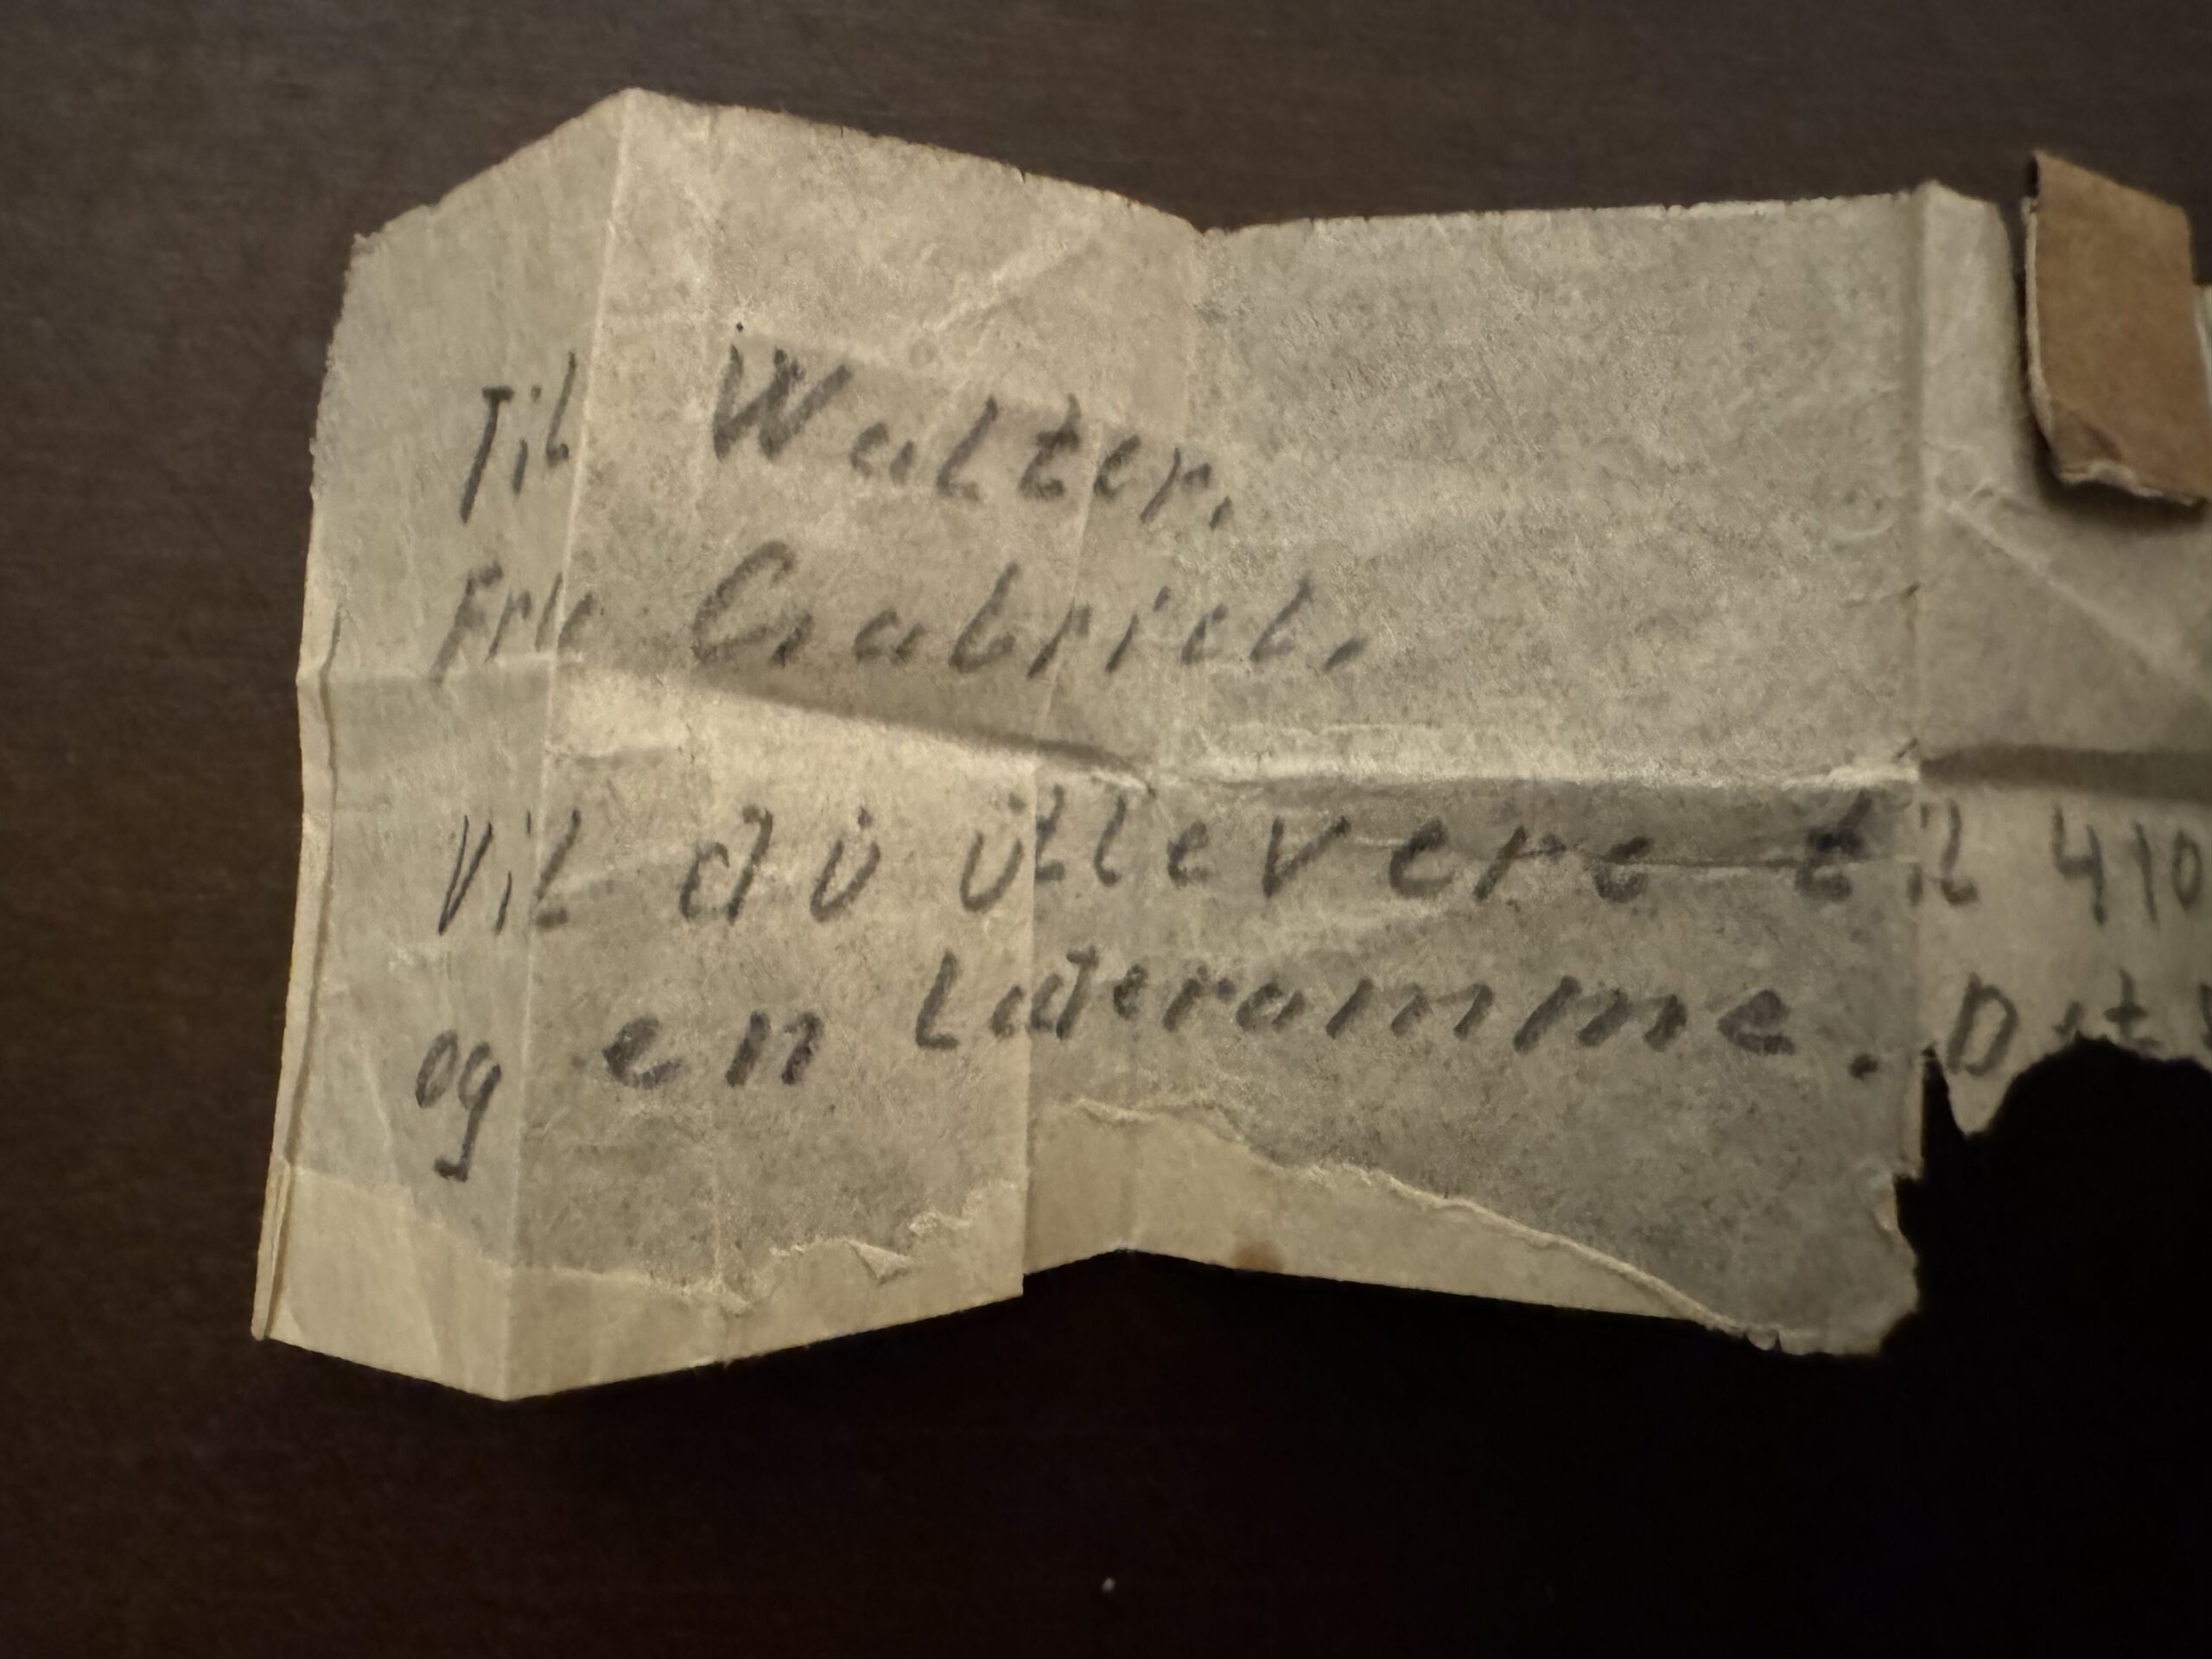 Til Walter,
Fra Gabriel.
Vil du utlevere til 410
og en Lateramme. Det